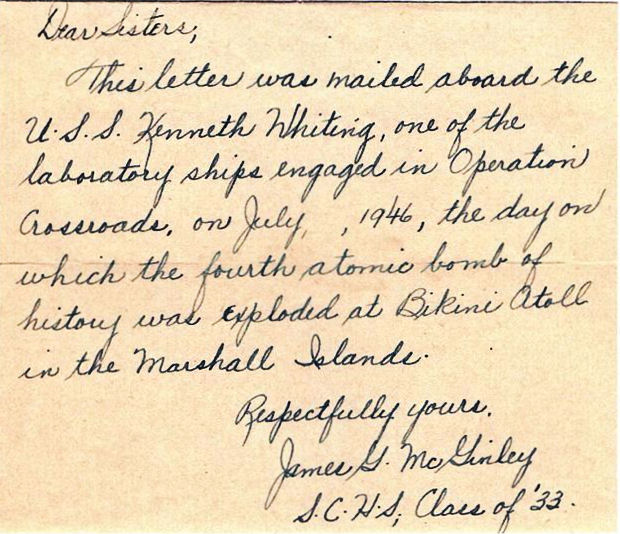 Dear Sisters,
This letter was mailed aboard the
U.S.S. Kenneth Whiting, one of the
laboratory ships engaged in Operation
Crossroads, on July , 1946, the day on
which the fourth atomic bomb of
history was exploded at Bikini Atoll
in the Marshall Islands.
Respectfully yours,
James G. McGinley
S.C.H.S, Class of '33.